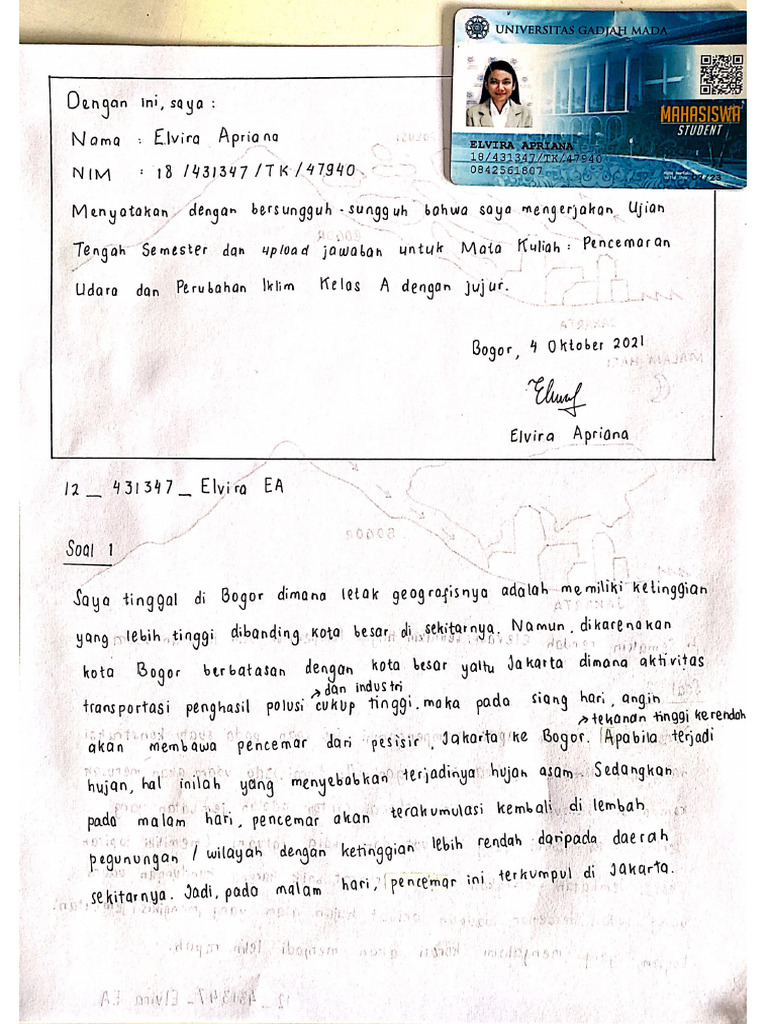 UNIVERSITAS GADJAH MADA
MAHASISWA
STUDENT
ELVIRA APRIANA
18/431347/TK/47940
0842561807
Dengan ini, saya :
Nama : Elvira Apriana
NIM : 18 /431347/TK/47940
Menyatakan dengan bersungguh-sungguh bahwa saya mengerjakan Ujian
Tengah Semester dan upload jawaban untuk Mata Kuliah : Pencemaran
Udara dan Perubahan Iklim Kelas A dengan jujur.
Bogor, 4 Oktober 2021
Elvira Apriana
12 _ 431347 _ Elvira EA
Soal 1
Saya tinggal di Bogor dimana letak geografisnya adalah memiliki ketinggian
yang lebih tinggi dibanding kota besar di sekitarnya. Namun, dikarenakan
kota Bogor berbatasan dengan kota besar yaitu Jakarta dimana aktivitas
→ dan industri
transportasi penghasil polusi cukup tinggi, maka pada siang hari, angin
→ tekanan tinggi ke rendah
akan membawa pencemar dari pesisir, Jakarta ke Bogor. Apabila terjadi
hujan, hal inilah yang menyebabkan terjadinya hujan asam. Sedangkan
pada malam hari, pencemar akan terakumulasi kembali di lembah
pegunungan / wilayah dengan ketinggian lebih rendah daripada daerah
sekitarnya. Jadi, pada malam hari, pencemar ini terkumpul di Jakarta.